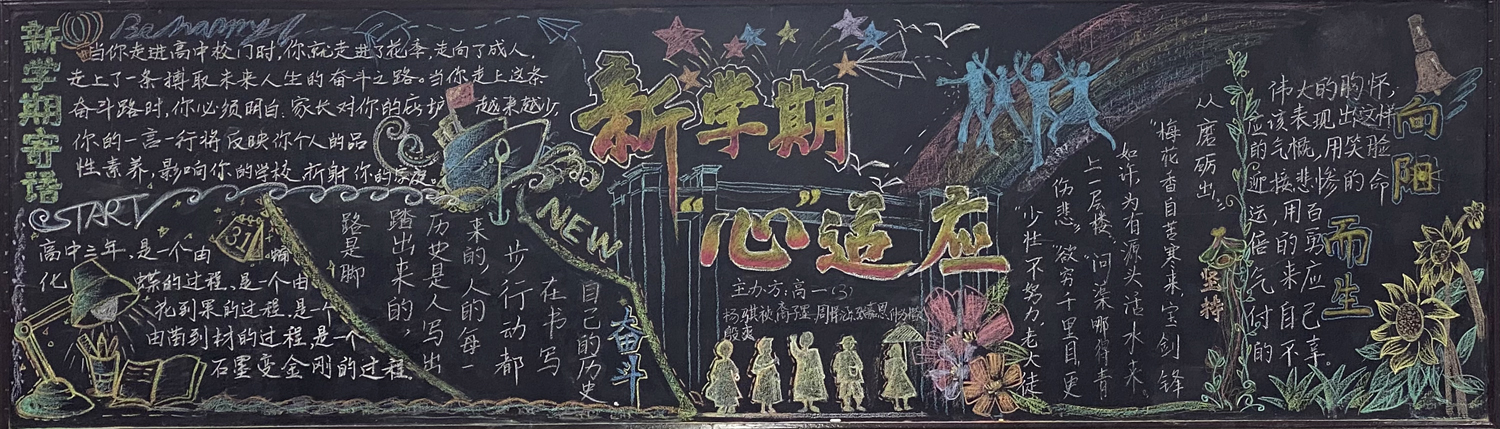 新学期寄语
Be happy!
当你走进高中校门时,你就走进了花季,走向了成人,
走上了一条搏取未来人生的奋斗之路。当你走上这条
奋斗路时,你必须明白.家长对你的庇护 越来越少,
你的一言一行将反映你个人的品
性素养,影响你的学校.折射你的
START
高中三年,是一个由蛹
化 蝶的过程,是一个由
花到果的过程.是一个
由苗到材的过程,是一个
石墨变金刚的过程.
31
路是脚
踏出来的,
历史是人写出
来的,人的每一
步行动都
在书写
自己的历史.
NEW
奋斗
新学期
“心”适应
主办方:高一(3)
"少壮不努力,老大徒
伤悲""欲穷千里目,更
上一层楼""问渠哪得清
如许,为有源头活水来。
"梅花香自苦寒来,宝剑锋
从磨砺出"
坚持
伟大的胸怀,
应该表现出这样
的气慨,用笑脸
迎接悲惨的命
运,用百
倍的勇
气来应
付自己
的不幸。
向阳
而生